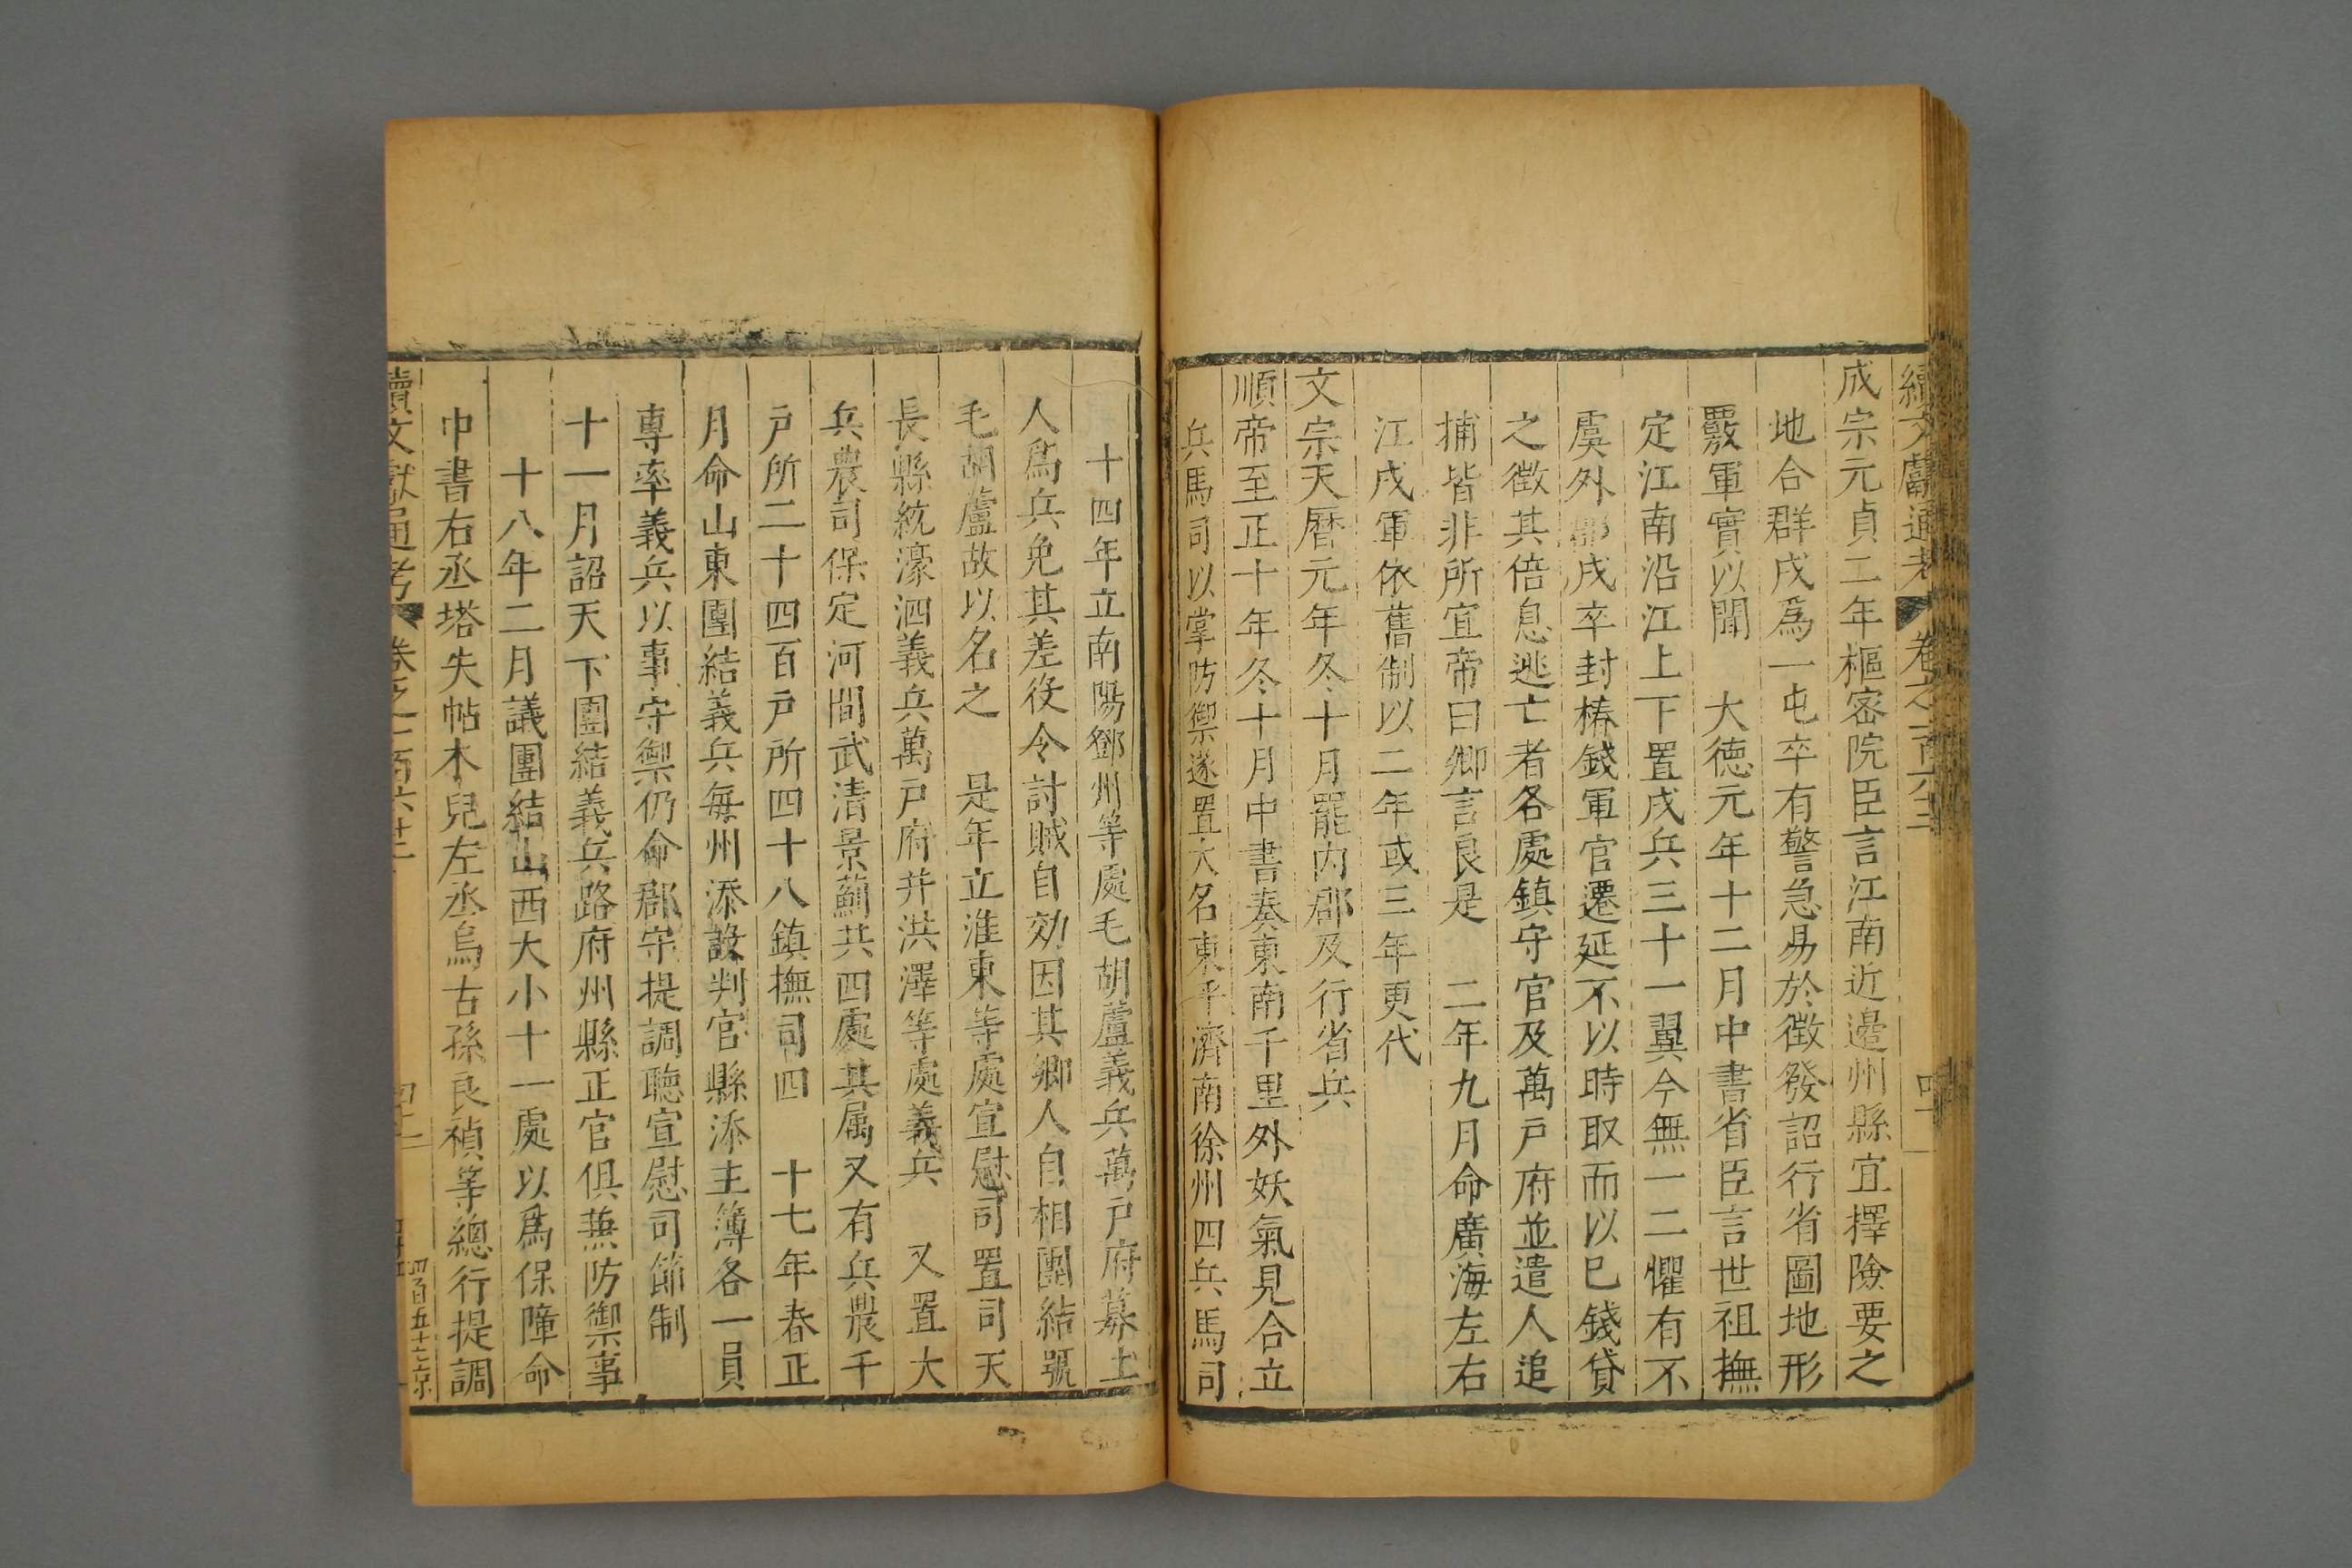 續文獻通考 卷之一百六十三 四十一
成宗元貞二年樞密院臣言江南近邊州縣宜擇險要之
地合群戍爲一屯卒有警急易於徵發詔行省圖地形
覈軍實以聞 大德元年十二月中書省臣言世祖撫
定江南沿江上下置戍兵三十一翼今無一二懼有不
虞外郡戍卒封樁錢軍官遷延不以時取而以已錢貸
之徵其倍息逃亡者各處鎮守官及萬戶府並遣人追
捕皆非所宜帝曰卿言良是 二年九月命廣海左右
江戍軍依舊制以二年或三年更代
文宗天曆元年冬十月罷內郡及行省兵
順帝至正十年冬十月中書奏東南千里外妖氣見合立
兵馬司以掌防禦遂置大名東平濟南徐州四兵馬司
十四年立南陽鄧州等處毛胡蘆義兵萬戶府募土
人爲兵免其差役令討賊自効因其鄉人自相團結號
毛胡蘆故以名之 是年立淮東等處宣慰司置司天
長縣統濠泗義兵萬戶府并洪澤等處義兵 又置大
兵農司保定河間武清景薊共四處其属又有兵農千
戶所二十四百戶所四十八鎮撫司四 十七年春正
月命山東團結義兵每州添設判官縣添主簿各一員
專率義兵以事守禦仍命郡守提調聽宣慰司節制
十一月詔天下團結義兵路府州縣正官俱兼防禦事
十八年二月議團結山西大小十一處以爲保障命
中書右丞塔失帖木兒左丞烏古孫良禎等總行提調
續文獻通考 卷之一百六十三